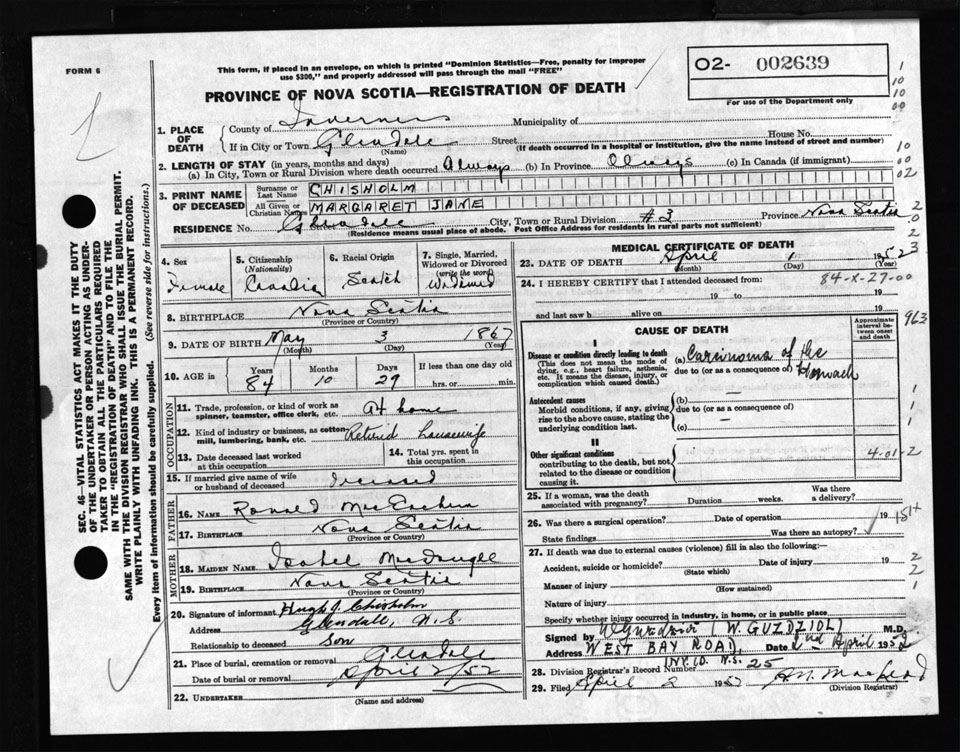 FORM 6
This form, if placed in an envelope, on which is printed "Dominion Statistics—Free, penalty for improper
use $300," and properly addressed will pass through the mail "FREE"
O2- 002639
For use of the Department only
PROVINCE OF NOVA SCOTIA—REGISTRATION OF DEATH
1. PLACE OF DEATH
County of Inverness Municipality of
If in City or Town Glendale Street House No.
(Name) (If death occurred in a hospital or institution, give the name instead of street and number)
2. LENGTH OF STAY (in years, months and days)
(a) In City, Town or Rural Division where death occurred Always (b) In Province Always (c) In Canada (if immigrant)
3. PRINT NAME OF DECEASED
Surname or Last Name CHISHOLM
All Given or Christian Names MARGARET JANE
RESIDENCE No. Glendale City, Town or Rural Division #3 Province Nova Scotia
(Residence means usual place of abode. Post Office Address for residents in rural parts not sufficient)
4. Sex Female
5. Citizenship (Nationality) Canadian
6. Racial Origin Scotch
7. Single, Married, Widowed or Divorced (write the word) Widowed
8. BIRTHPLACE Nova Scotia
(Province or Country)
9. DATE OF BIRTH May 3 1867
(Month) (Day) (Year)
10. AGE in Years Months Days If less than one day old
84 10 29 hrs. or min.
OCCUPATION
11. Trade, profession, or kind of work as spinner, teamster, office clerk, etc. At home
12. Kind of industry or business, as cotton-mill, lumbering, bank, etc. Retired housewife
13. Date deceased last worked at this occupation
14. Total yrs. spent in this occupation
15. If married give name of wife or husband of deceased
FATHER
16. NAME Ronald MacEachern
17. BIRTHPLACE Nova Scotia
(Province or Country)
MOTHER
18. MAIDEN NAME Isabel MacDougall
19. BIRTHPLACE Nova Scotia
(Province or Country)
20. Signature of informant Hugh J. Chisholm
Address Glendale, N.S.
Relationship to deceased Son
21. Place of burial, cremation or removal Glendale
Date of burial or removal April 2/52
22. UNDERTAKER
(Name and address)
MEDICAL CERTIFICATE OF DEATH
23. DATE OF DEATH April 1 1952
(Month) (Day) (Year)
24. I HEREBY CERTIFY that I attended deceased from: 84-X-27-00
19 to 19
and last saw h alive on 19
963
CAUSE OF DEATH
Approximate interval between onset and death
I
Disease or condition directly leading to death
(This does not mean the mode of dying, e.g., heart failure, asthenia, etc. It means the disease, injury, or complication which caused death.)
(a) Carcinoma of the
due to (or as a consequence of) stomach
Antecedent causes
Morbid conditions, if any, giving rise to the above cause, stating the underlying condition last.
(b)
due to (or as a consequence of)
(c)
II
Other significant conditions
contributing to the death, but not related to the disease or condition causing it.
4-01-2
25. If a woman, was the death associated with pregnancy? Duration weeks. Was there a delivery?
26. Was there a surgical operation? Date of operation 19
State findings Was there an autopsy?
27. If death was due to external causes (violence) fill in also the following:—
Accident, suicide or homicide? Date of injury 19
(State which)
Manner of injury
(How sustained)
Nature of injury
Specify whether injury occurred in industry, in home, or in public place
Signed by (W. GUZDZIOL) M.D.
Address WEST BAY ROAD, Date 2nd April 1952
N.S.
28. Division Registrar's Record Number 25
29. Filed April 2 1952 MacLeod
(Division Registrar)
SEC. 46—VITAL STATISTICS ACT MAKES IT THE DUTY
OF THE UNDERTAKER OR PERSON ACTING AS UNDER-
TAKER TO OBTAIN ALL THE PARTICULARS REQUIRED
IN THE "REGISTRATION OF DEATH" AND TO FILE THE
SAME WITH THE DIVISION REGISTRAR WHO SHALL ISSUE THE BURIAL PERMIT.
WRITE PLAINLY WITH UNFADING INK. THIS IS A PERMANENT RECORD.
Every item of information should be carefully supplied. (See reverse side for instructions.)